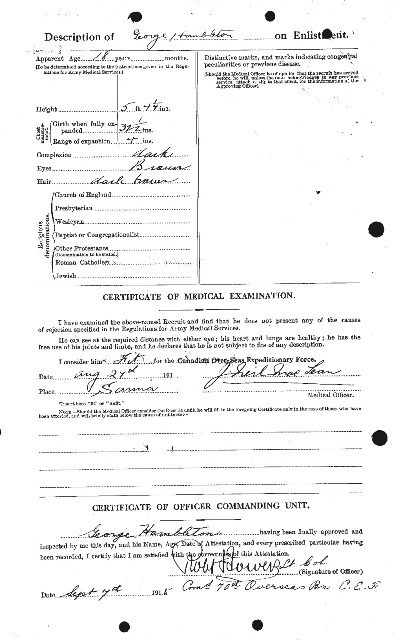 Description of George Hambleton on Enlistment.
Apparent Age 18 years months.
(To be determined according to the instructions given in the Regulations for Army Medical Services.)
Distinctive marks, and marks indicating congenital
peculiarities or previous disease.
(Should the Medical Officer be of opinion that the recruit has served
before, he will, unless the man acknowledges to any previous
service, attach a slip to that effect, for the information of the
Approving Officer).
Height 5 ft. ins.
Chest measurement
Girth when fully expanded ins.
Range of expansion 4 ins.
Complexion dark
Eyes Brown
Hair dark brown
Religious denominations.
Church of England
Presbyterian
Wesleyan
Baptist or Congregationalist
Other Protestants
(Denomination to be stated.)
Roman Catholic
Jewish
CERTIFICATE OF MEDICAL EXAMINATION.
I have examined the above-named Recruit and find that he does not present any of the causes
of rejection specified in the Regulations for Army Medical Services.
He can see at the required distance with either eye; his heart and lungs are healthy; he has the
free use of his joints and limbs, and he declares that he is not subject to fits of any description.
I consider him* Fit for the Canadian Over-Seas Expeditionary Force.
Date Aug 27th 191
Place Sarnia
J. Neil MacLean
Medical Officer.
*Insert here "fit" or "unfit."
NOTE.—Should the Medical Officer consider the Recruit unfit, he will fill in the foregoing Certificate only in the case of those who have
been attested, and will briefly state below the cause of unfitness:—
CERTIFICATE OF OFFICER COMMANDING UNIT.
George Hambleton having been finally approved and
inspected by me this day, and his Name, Age, Date of Attestation, and every prescribed particular having
been recorded, I certify that I am satisfied with the correctness of this Attestation.
Lt. Col.
(Signature of Officer)
Date Sept 7th 1915
Comd 70th Overseas Bn C.E.F.